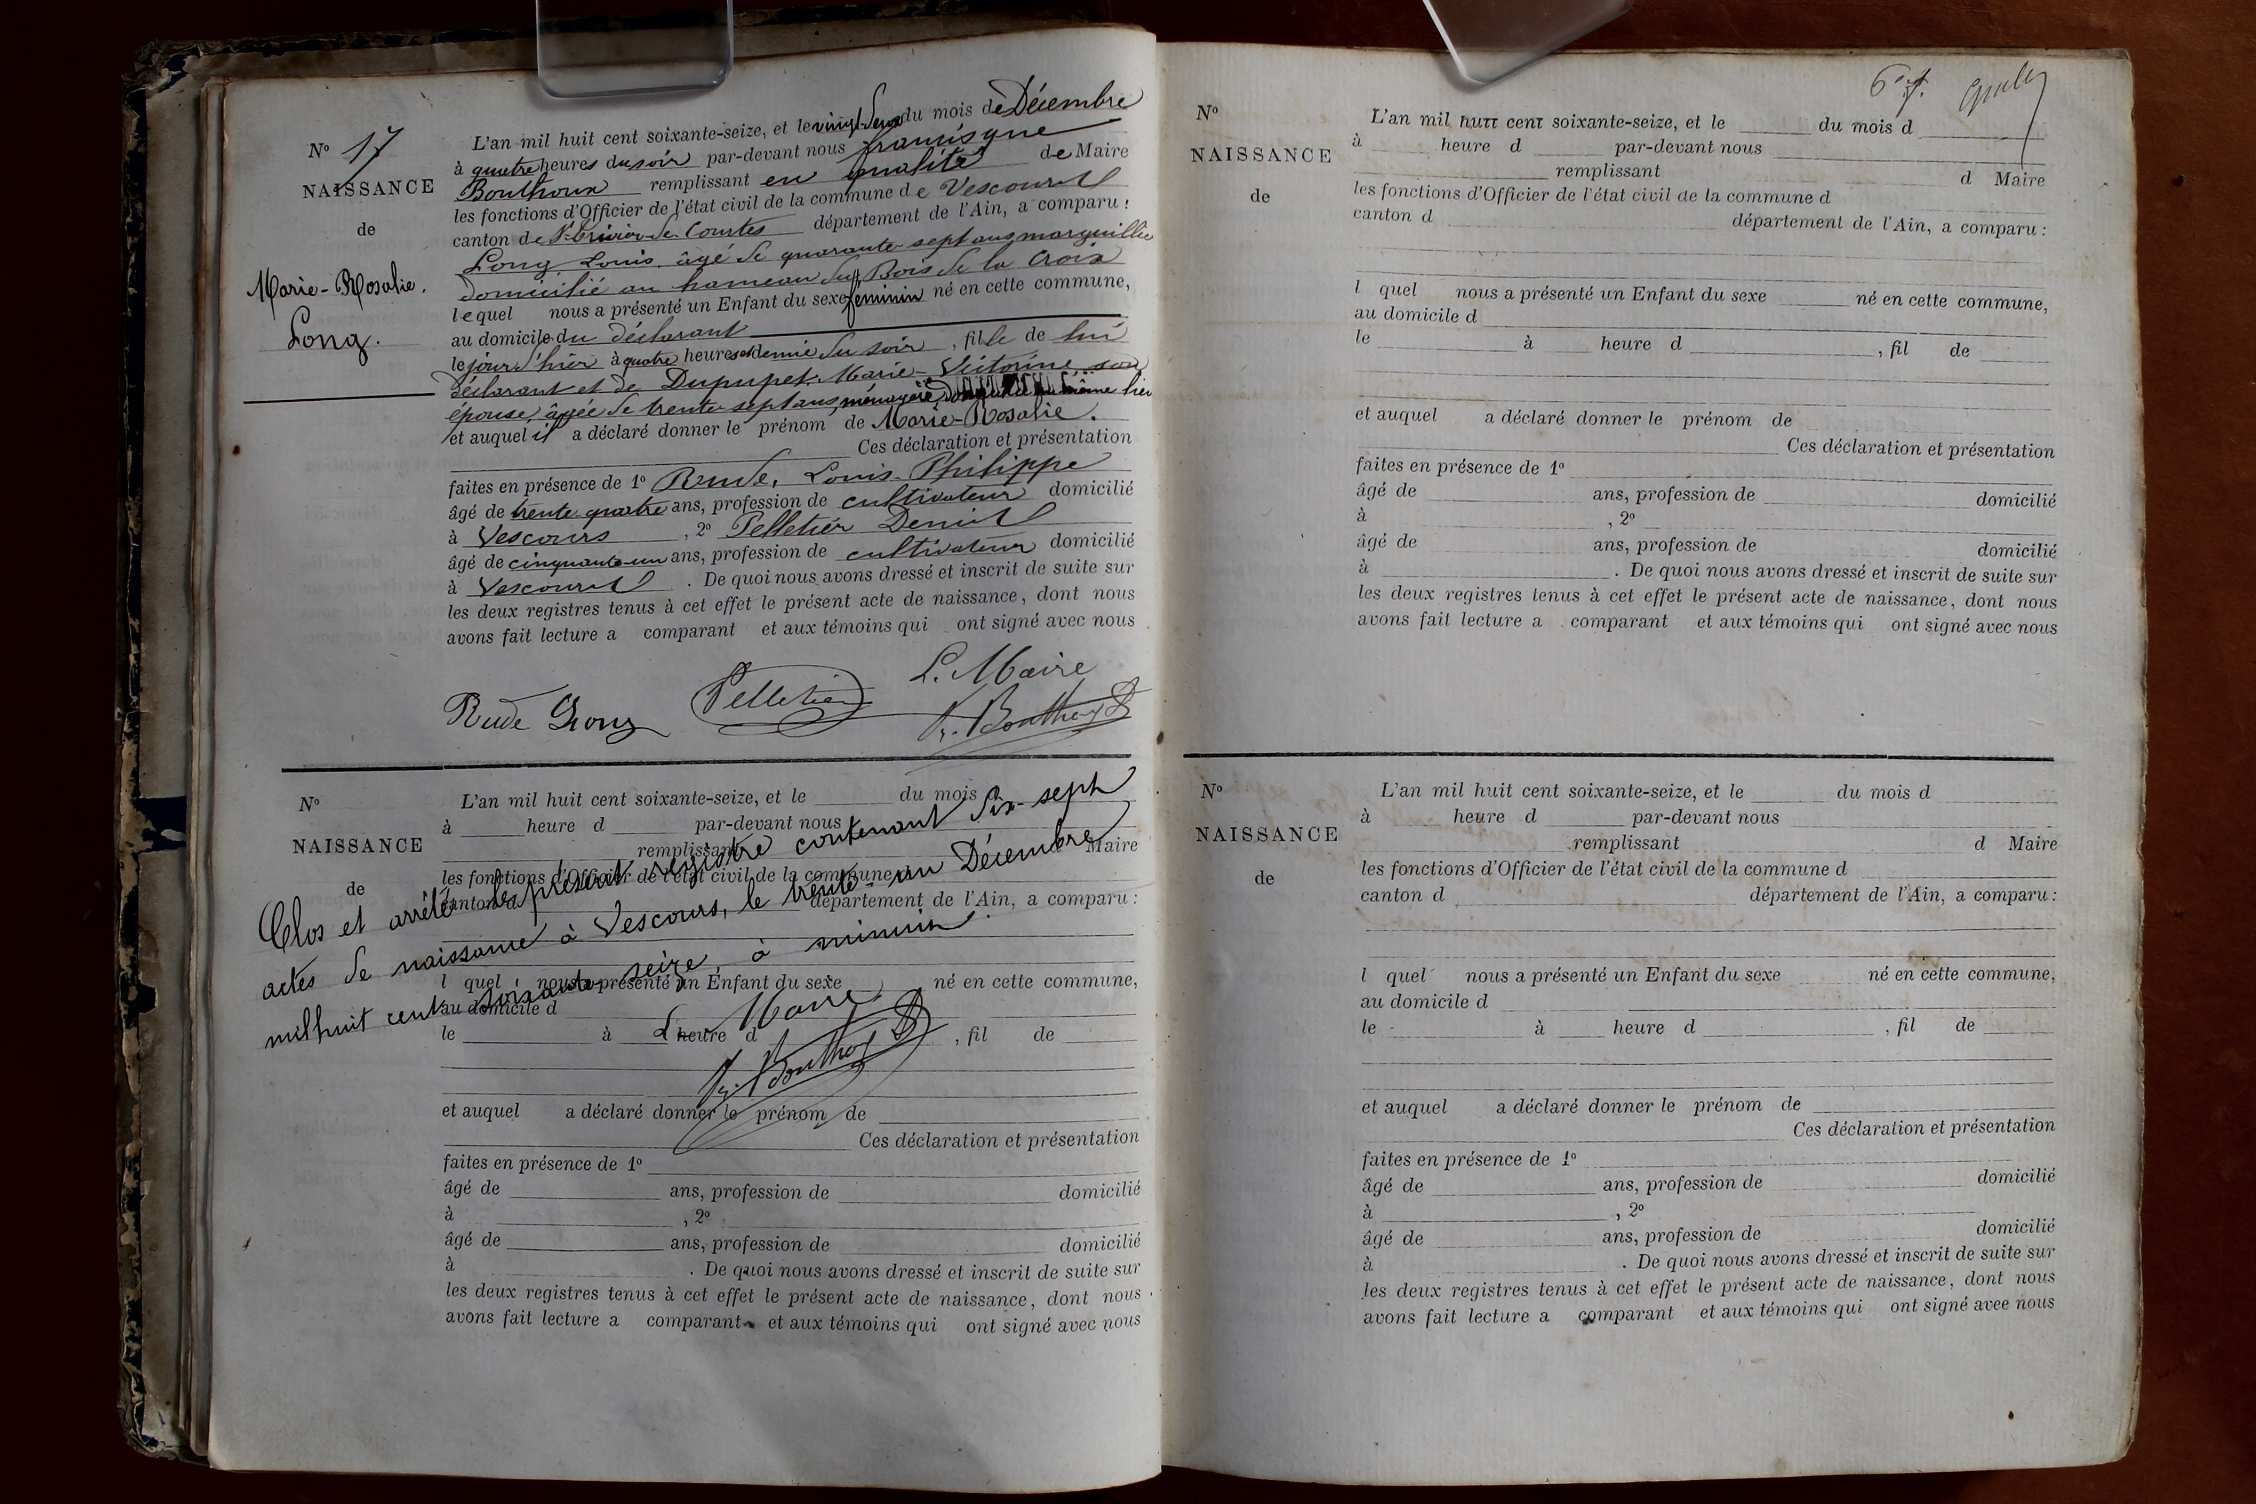 N° 17
NAISSANCE
de
Marie-Rosalie.
Long.
L'an mil huit cent soixante-seize, et le vingt deux du mois de Décembre
à quatre heures du soir par-devant nous francisque
Bouthoux remplissant en qualité de Maire
les fonctions d'Officier de l'état civil de la commune de Vescours
canton de St Trivier de Courtes département de l'Ain, a comparu :
Long Louis âgé de quarante-sept ans marguillier
domicilié au hameau du Bois de la Croix
lequel nous a présenté un Enfant du sexe féminin né en cette commune,
au domicile du déclarant
le jour d'hier à quatre heures et demie du soir, fille de lui
déclarant et de Dupupet Marie-Victorine son
épouse, âgée de trente-sept ans, ménagère, même lieu
et auquel il a déclaré donner le prénom de Marie-Rosalie.
Ces déclaration et présentation
faites en présence de 1° Rude, Louis-Philippe
âgé de trente-quatre ans, profession de cultivateur domicilié
à Vescours, 2° Pelletier Denis
âgé de cinquante-un ans, profession de cultivateur domicilié
à Vescours. De quoi nous avons dressé et inscrit de suite sur
les deux registres tenus à cet effet le présent acte de naissance, dont nous
avons fait lecture a comparant et aux témoins qui ont signé avec nous
L. Maire
Rude Long Pelletier
Fr. Bouthoux
N°
NAISSANCE
de
L'an mil huit cent soixante-seize, et le du mois
à heure d par-devant nous
remplissant Maire
les fonctions d'Officier de l'état civil de la commune
canton d département de l'Ain, a comparu :
l quel nous a présenté un Enfant du sexe né en cette commune,
au domicile d
le à heure d , fil de
et auquel a déclaré donner le prénom de
Ces déclaration et présentation
faites en présence de 1°
âgé de ans, profession de domicilié
à , 2°
âgé de ans, profession de domicilié
à . De quoi nous avons dressé et inscrit de suite sur
les deux registres tenus à cet effet le présent acte de naissance, dont nous
avons fait lecture a comparant et aux témoins qui ont signé avec nous
Clos et arrêté le présent registre contenant dix-sept
actes de naissance à Vescours, le trente-un Décembre
mil huit cent soixante seize, à minuit.
Le Maire
Fr. Bouthoux
6e f.
N°
NAISSANCE
de
L'an mil huit cent soixante-seize, et le du mois d
à heure d par-devant nous
remplissant d Maire
les fonctions d'Officier de l'état civil de la commune d
canton d département de l'Ain, a comparu :
l quel nous a présenté un Enfant du sexe né en cette commune,
au domicile d
le à heure d , fil de
et auquel a déclaré donner le prénom de
Ces déclaration et présentation
faites en présence de 1°
âgé de ans, profession de domicilié
à , 2°
âgé de ans, profession de domicilié
à . De quoi nous avons dressé et inscrit de suite sur
les deux registres tenus à cet effet le présent acte de naissance, dont nous
avons fait lecture a comparant et aux témoins qui ont signé avec nous
N°
NAISSANCE
de
L'an mil huit cent soixante-seize, et le du mois d
à heure d par-devant nous
remplissant d Maire
les fonctions d'Officier de l'état civil de la commune d
canton d département de l'Ain, a comparu :
l quel nous a présenté un Enfant du sexe né en cette commune,
au domicile d
le à heure d , fil de
et auquel a déclaré donner le prénom de
Ces déclaration et présentation
faites en présence de 1°
âgé de ans, profession de domicilié
à , 2°
âgé de ans, profession de domicilié
à . De quoi nous avons dressé et inscrit de suite sur
les deux registres tenus à cet effet le présent acte de naissance, dont nous
avons fait lecture a comparant et aux témoins qui ont signé avec nous